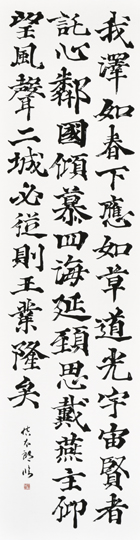 我澤如春下應如草道光宇宙賢者
託心鄰國傾慕四海延頚思戴燕主仰
望風聲二城必從則王業隆矣